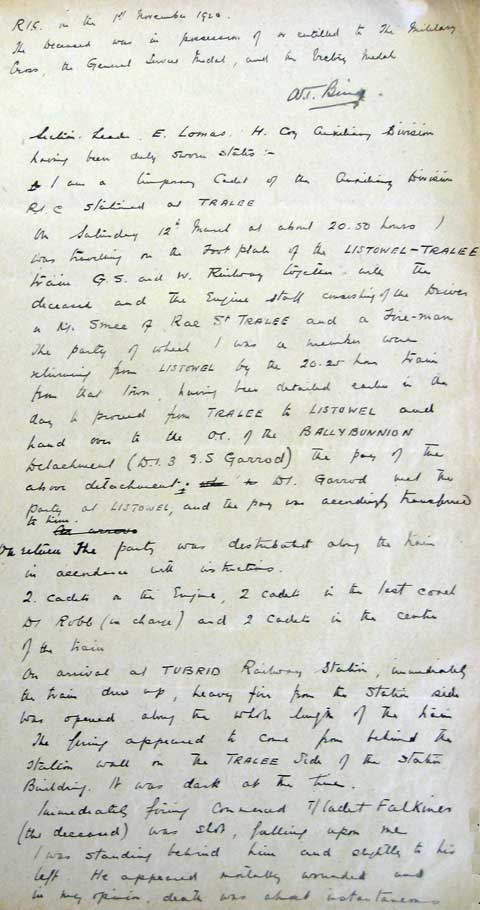 RIC. in the 1st November 1920.
The Deceased was in possession of or entitled to The Military
Cross, the General Service Medal, and the Victory Medal
Section Leader E. Lomas. H. Coy Auxiliary Division
having been duly sworn states :-
I am a temporary Cadet of the Auxiliary Division
RIC stationed at TRALEE
On Saturday 12th March at about 20.50 hours I
was travelling on the Footplate of the LISTOWEL-TRALEE
train G.S. and W. Railway together with the
deceased and the Engine staff consisting of the Driver
a Mr Smee of Rae St TRALEE and a Fire-man
The party of which I was a member were
returning from LISTOWEL by the 20.20 hour train
from that town, having been detailed earlier in the
day to proceed from TRALEE to LISTOWEL and
hand over to the OC. of the BALLYBUNNION
Detachment (D.I.3 G.S Garrod) the pay of the
above detachment. DI. Garrod met the
party at LISTOWEL, and the pay was accordingly transferred
to him.
On return the party was distributed along the train
in accordance with instructions.
2. cadets on the Engine, 2 cadets in the last coach
DI Robb (in charge) and 2 cadets in the centre
of the train
On arrival at TUBRID Railway Station, immediately
the train drew up, heavy fire from the Station side
was opened along the whole length of the train
The firing appeared to come from behind the
station wall on the TRALEE side of the Station
Building. It was dark at the time.
Immediately firing commenced T/Cadet Falkiner
(the deceased) was shot, falling upon me
I was standing behind him and slightly to his
left. He appeared mortally wounded and
in my opinion, death was about instantaneous